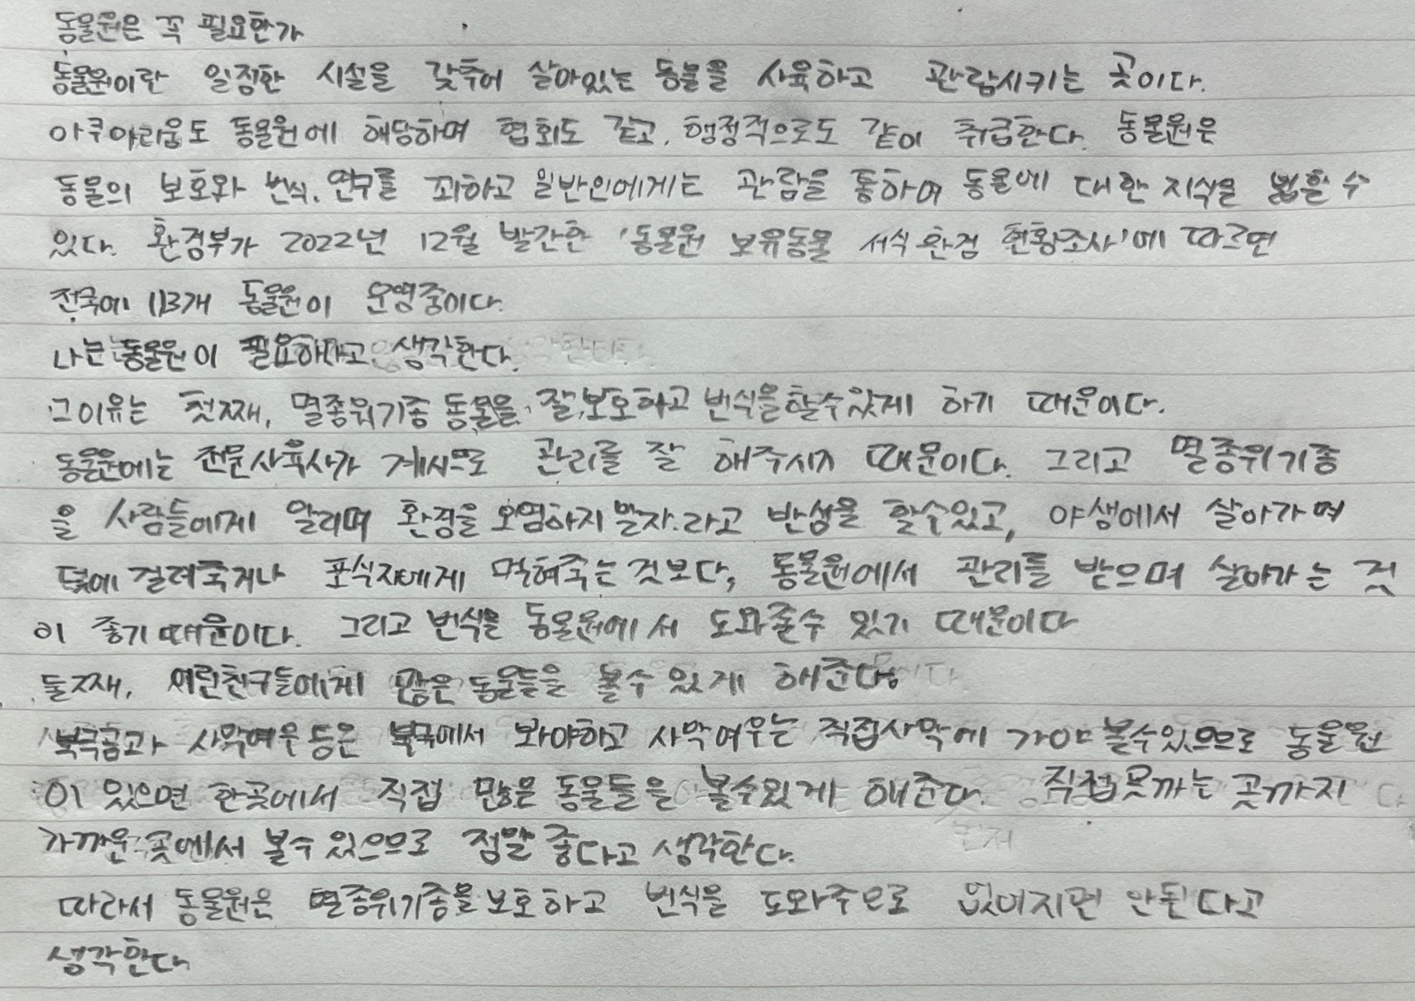 동물원은 꼭 필요한가
동물원이란 일정한 시설을 갖추어 살아있는 동물을 사육하고 관람시키는 곳이다.
아쿠아리움도 동물원에 해당하며 협회도 같고, 행정적으로도 같이 취급한다. 동물원은
동물의 보호와 번식, 연구를 꾀하고 일반인에게는 관람을 통하여 동물에 대한 지식을 넓힐 수
있다. 환경부가 2022년 12월 발간한 '동물원 보유동물 서식 환경 현황조사'에 따르면
전국에 113개 동물원이 운영중이다.
나는 동물원이 필요하다고 생각한다.
그이유는 첫째, 멸종위기종 동물을 잘 보호하고 번식을 할수있게 하기 때문이다.
동물원에는 전문사육사가 계시므로 관리를 잘 해주시기 때문이다. 그리고 멸종위기종
을 사람들에게 알리며 환경을 오염하지 말자.라고 반성을 할수있고, 야생에서 살아가며
덫에 걸려죽거나 포식자에게 먹혀죽는 것보다, 동물원에서 관리를 받으며 살아가는 것
이 좋기 때문이다. 그리고 번식을 동물원에서 도와줄수 있기 때문이다
둘째, 어린친구들에게 많은 동물들을 볼수 있게 해준다.
북극곰과 사막여우 등은 북극에서 봐야하고 사막여우는 직접사막에 가야 볼수있으므로 동물원
이 있으면 한곳에서 직접 많은 동물들을 볼수있게 해준다. 직접못가는 곳까지
가까운 곳에서 볼수 있으므로 정말 좋다고 생각한다.
따라서 동물원은 멸종위기종을 보호하고 번식을 도와주므로 없어지면 안된다고
생각한다